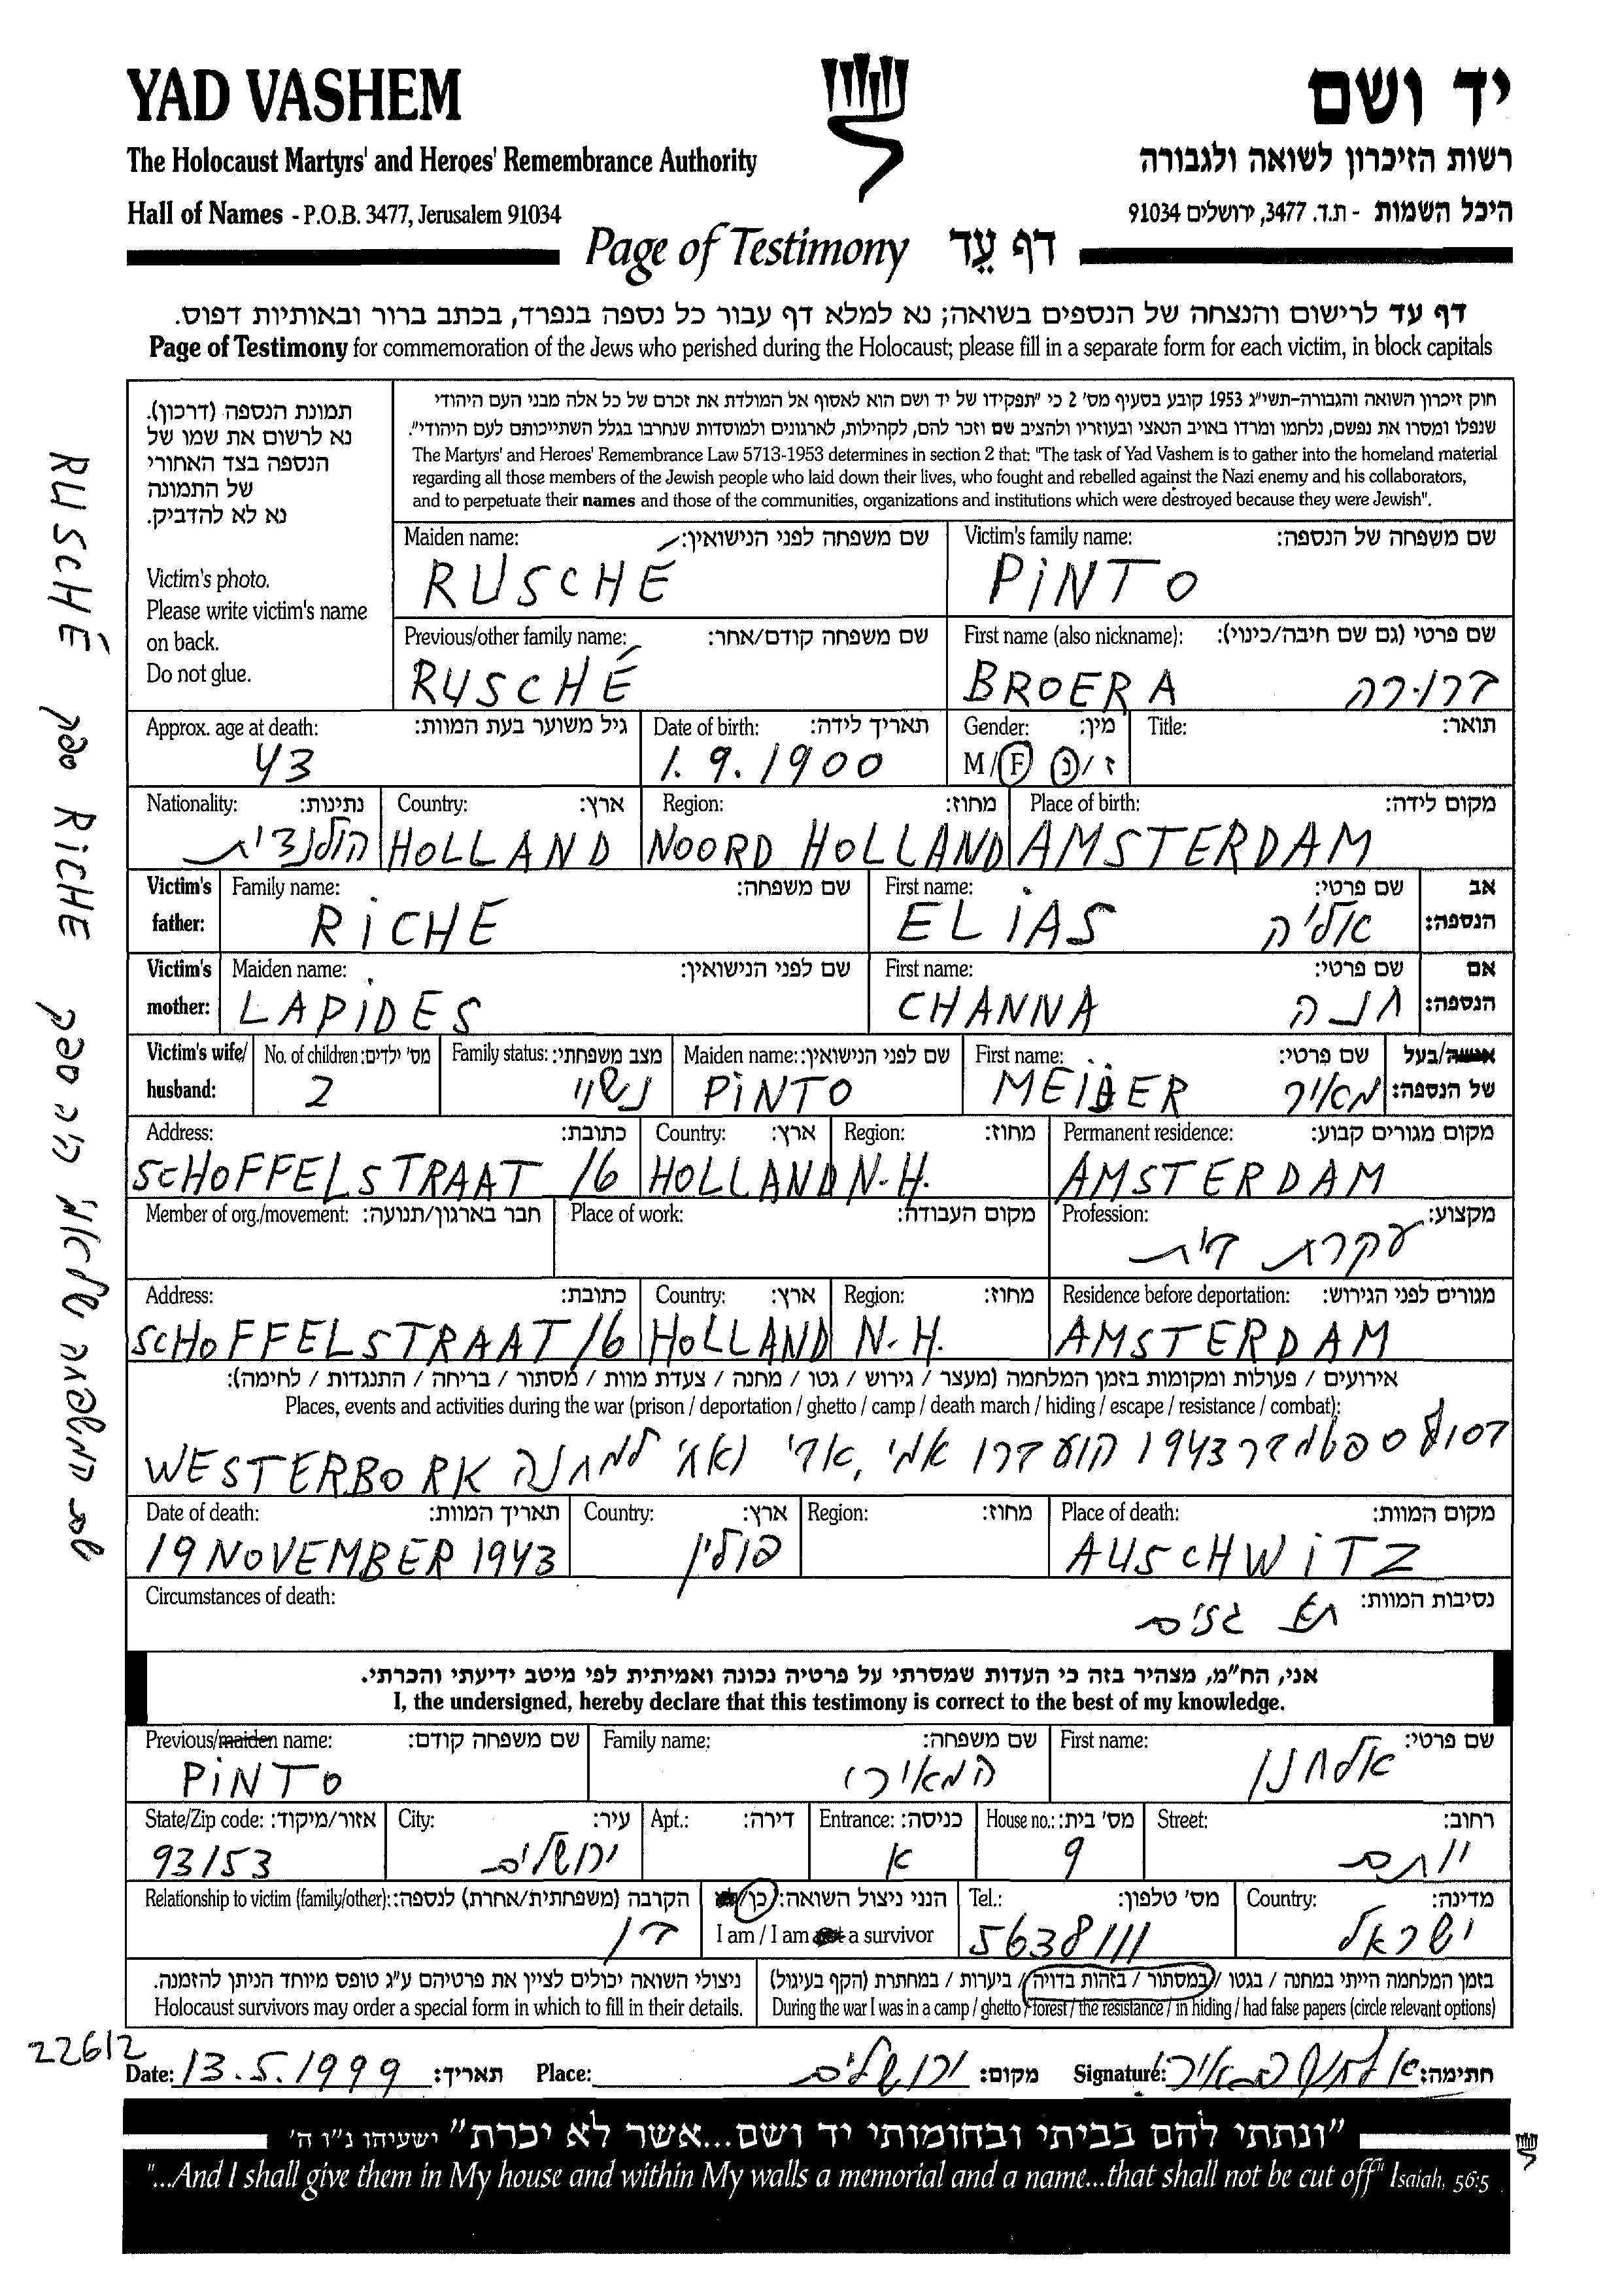 YAD VASHEM
יד ושם
The Holocaust Martyrs' and Heroes' Remembrance Authority
רשות הזיכרון לשואה ולגבורה
Hall of Names - P.O.B. 3477, Jerusalem 91034
היכל השמות - ת.ד. 3477, ירושלים 91034
Page of Testimony דף עֵד
דף עד לרישום והנצחה של הנספים בשואה; נא למלא דף עבור כל נספה בנפרד, בכתב ברור ובאותיות דפוס.
Page of Testimony for commemoration of the Jews who perished during the Holocaust; please fill in a separate form for each victim, in block capitals
תמונת הנספה (דרכון).
נא לרשום את שמו של
הנספה בצד האחורי
של התמונה
נא לא להדביק.
Victim's photo.
Please write victim's name
on back.
Do not glue.
חוק זיכרון השואה והגבורה-תשי"ג 1953 קובע בסעיף מס' 2 כי "תפקידו של יד ושם הוא לאסוף אל המולדת את זכרם של כל אלה מבני העם היהודי
שנפלו ומסרו את נפשם, נלחמו ומרדו באויב הנאצי ובעוזריו ולהציב שם וזכר להם, לקהילות, לארגונים ולמוסדות שנחרבו בגלל השתייכותם לעם היהודי".
The Martyrs' and Heroes' Remembrance Law 5713-1953 determines in section 2 that: "The task of Yad Vashem is to gather into the homeland material
regarding all those members of the Jewish people who laid down their lives, who fought and rebelled against the Nazi enemy and his collaborators,
and to perpetuate their names and those of the communities, organizations and institutions which were destroyed because they were Jewish".
Maiden name: שם משפחה לפני הנישואין:
RUSCHÉ
Victim's family name: שם משפחה של הנספה:
PINTO
Previous/other family name: שם משפחה קודם/אחר:
RUSCHÉ
First name (also nickname): שם פרטי (גם שם חיבה/כינוי):
BROERA ברורה
Approx. age at death: גיל משוער בעת המוות:
43
Date of birth: תאריך לידה:
1.9.1900
Gender: מין:
M/F ז/נ
Title: תואר:
Nationality: נתינות:
הולנדית
Country: ארץ:
HOLLAND
Region: מחוז:
NOORD HOLLAND
Place of birth: מקום לידה:
AMSTERDAM
Victim's father: אב הנספה:
Family name: שם משפחה:
RICHE
First name: שם פרטי:
ELIAS אליה
Victim's mother: אם הנספה:
Maiden name: שם לפני הנישואין:
LAPIDES
First name: שם פרטי:
CHANNA חנה
Victim's wife/ husband: אשה/בעל של הנספה:
No. of children: מס' ילדים:
2
Family status: מצב משפחתי:
נשוי
Maiden name: שם לפני הנישואין:
PINTO
First name: שם פרטי:
MEIJER מאיר
Address: כתובת:
SCHOFFELSTRAAT 16
Country: ארץ:
HOLLAND
Region: מחוז:
N-H.
Permanent residence: מקום מגורים קבוע:
AMSTERDAM
Member of org./movement: חבר בארגון/תנועה:
Place of work: מקום העבודה:
Profession: מקצוע:
עקרת בית
Address: כתובת:
SCHOFFELSTRAAT 16
Country: ארץ:
HOLLAND
Region: מחוז:
N-H.
Residence before deportation: מגורים לפני הגירוש:
AMSTERDAM
אירועים / פעולות ומקומות בזמן המלחמה (מעצר / גירוש / גטו / מחנה / צעדת מוות / מסתור / בריחה / התנגדות / לחימה):
Places, events and activities during the war (prison / deportation / ghetto / camp / death march / hiding / escape / resistance / combat):
בסוף ספטמבר 1943 הועברו אמי, אבי ואחי למחנה WESTERBORK
Date of death: תאריך המוות:
19 NOVEMBER 1943
Country: ארץ:
פולין
Region: מחוז:
Place of death: מקום המוות:
AUSCHWITZ
Circumstances of death: נסיבות המוות:
תא גזים
אני, הח"מ, מצהיר בזה כי העדות שמסרתי על פרטיה נכונה ואמיתית לפי מיטב ידיעתי והכרתי.
I, the undersigned, hereby declare that this testimony is correct to the best of my knowledge.
Previous/maiden name: שם משפחה קודם:
PINTO
Family name: שם משפחה:
המאירי
First name: שם פרטי:
אלחנן
State/Zip code: אזור/מיקוד:
93153
City: עיר:
ירושלים
Apt.: דירה:
Entrance: כניסה:
א
House no.: מס' בית:
9
Street: רחוב:
יותם
Relationship to victim (family/other): הקרבה (משפחתית/אחרת) לנספה:
בן
הנני ניצול השואה: כן/
I am / I am a survivor
Tel.: מס' טלפון:
5638111
Country: מדינה:
ישראל
ניצולי השואה יכולים לציין את פרטיהם ע"ג טופס מיוחד הניתן להזמנה.
Holocaust survivors may order a special form in which to fill in their details.
בזמן המלחמה הייתי במחנה / בגטו / במסתור / בזהות בדויה / ביערות / במחתרת (הקף בעיגול)
During the war I was in a camp / ghetto / forest / the resistance / in hiding / had false papers (circle relevant options)
22612
Date: 13.5.1999 תאריך:
Place: ירושלים מקום:
Signature: אלחנן המאירי חתימה:
"ונתתי להם בביתי ובחומותי יד ושם...אשר לא יכרת" ישעיהו נ"ו ה'
"...And I shall give them in My house and within My walls a memorial and a name...that shall not be cut off" Isaiah, 56:5
RUSCHÉ ספק RICHE ספק היה המשפחה של שם